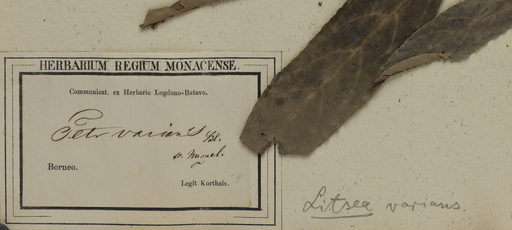 HERBARIUM REGIUM MONACENSE.
Communicat. ex Herbario Lugduno-Batavo.
Tetr varians Bl.
Borneo.
Legit Korthals.
Litsea varians